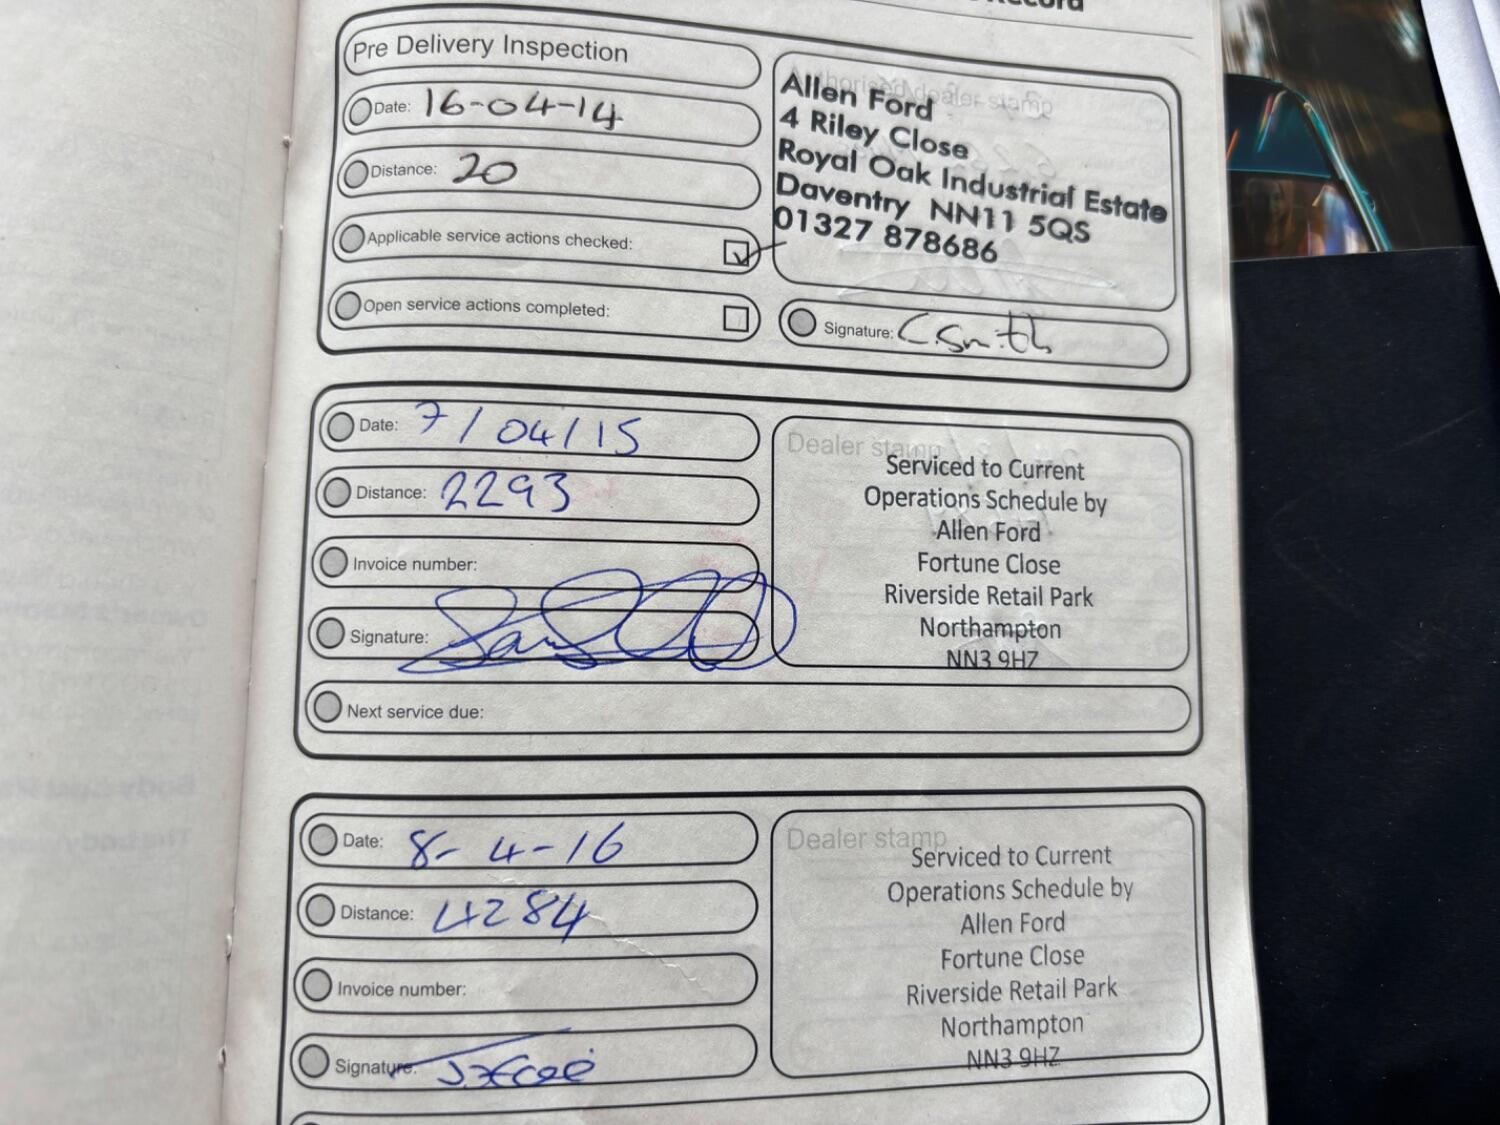 Record
Pre Delivery Inspection
Date: 16-04-14
Distance: 20
Applicable service actions checked:
Open service actions completed:
Authorised dealer stamp
Allen Ford
4 Riley Close
Royal Oak Industrial Estate
Daventry NN11 5QS
01327 878686
Signature: C.Smith
Date: 7/04/15
Distance: 2293
Invoice number:
Signature:
Next service due:
Dealer stamp
Serviced to Current
Operations Schedule by
Allen Ford
Fortune Close
Riverside Retail Park
Northampton
NN3 9HZ
Date: 8-4-16
Distance: 4284
Invoice number:
Signature:
Dealer stamp
Serviced to Current
Operations Schedule by
Allen Ford
Fortune Close
Riverside Retail Park
Northampton
NN3 9HZ